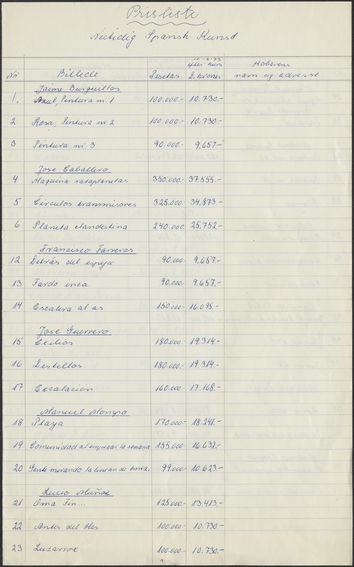 Prisliste
Nutidig Spansk Kunst
Nr Billede Pesetas efter kurs D. kroner Køberens navn og adresse
Jaime Burguillos
1. Azul, Pintura nr. 1 100.000.- 10.730.-
2 Rosa, Pintura nr. 2 100.000.- 10.730.-
3 Pintura nr. 3 90.000.- 9.657.-
Jose Caballero
4 Maquina 350.000.- 37.555.-
5 Circulos transmisores 325.000.- 34.873.-
6 Planeta clandestina 240.000.- 25.752.-
Francisco Farreras
12 Detrás del espejo 90.000.- 9.657.-
13 Fardo inca 90.000.- 9.657.-
14 Escalera al as 150.000.- 16.095.-
Jose Guerrero
15 Exilios 180.000.- 19.314.-
16 Destellos 180.000.- 19.314.-
17 Escalacion 160.000.- 17.168.-
Manuel Mompo
18 Playa 170.000.- 18.241.-
19 Comunidad al empezar la semana 155.000.- 16.632.-
20 Gente mirando la 99.000.- 10.623.-
Lucio Muñoz
21 125.000.- 13.413.-
22 Antes del 100.000.- 10.730.-
23 100.000.- 10.730.-